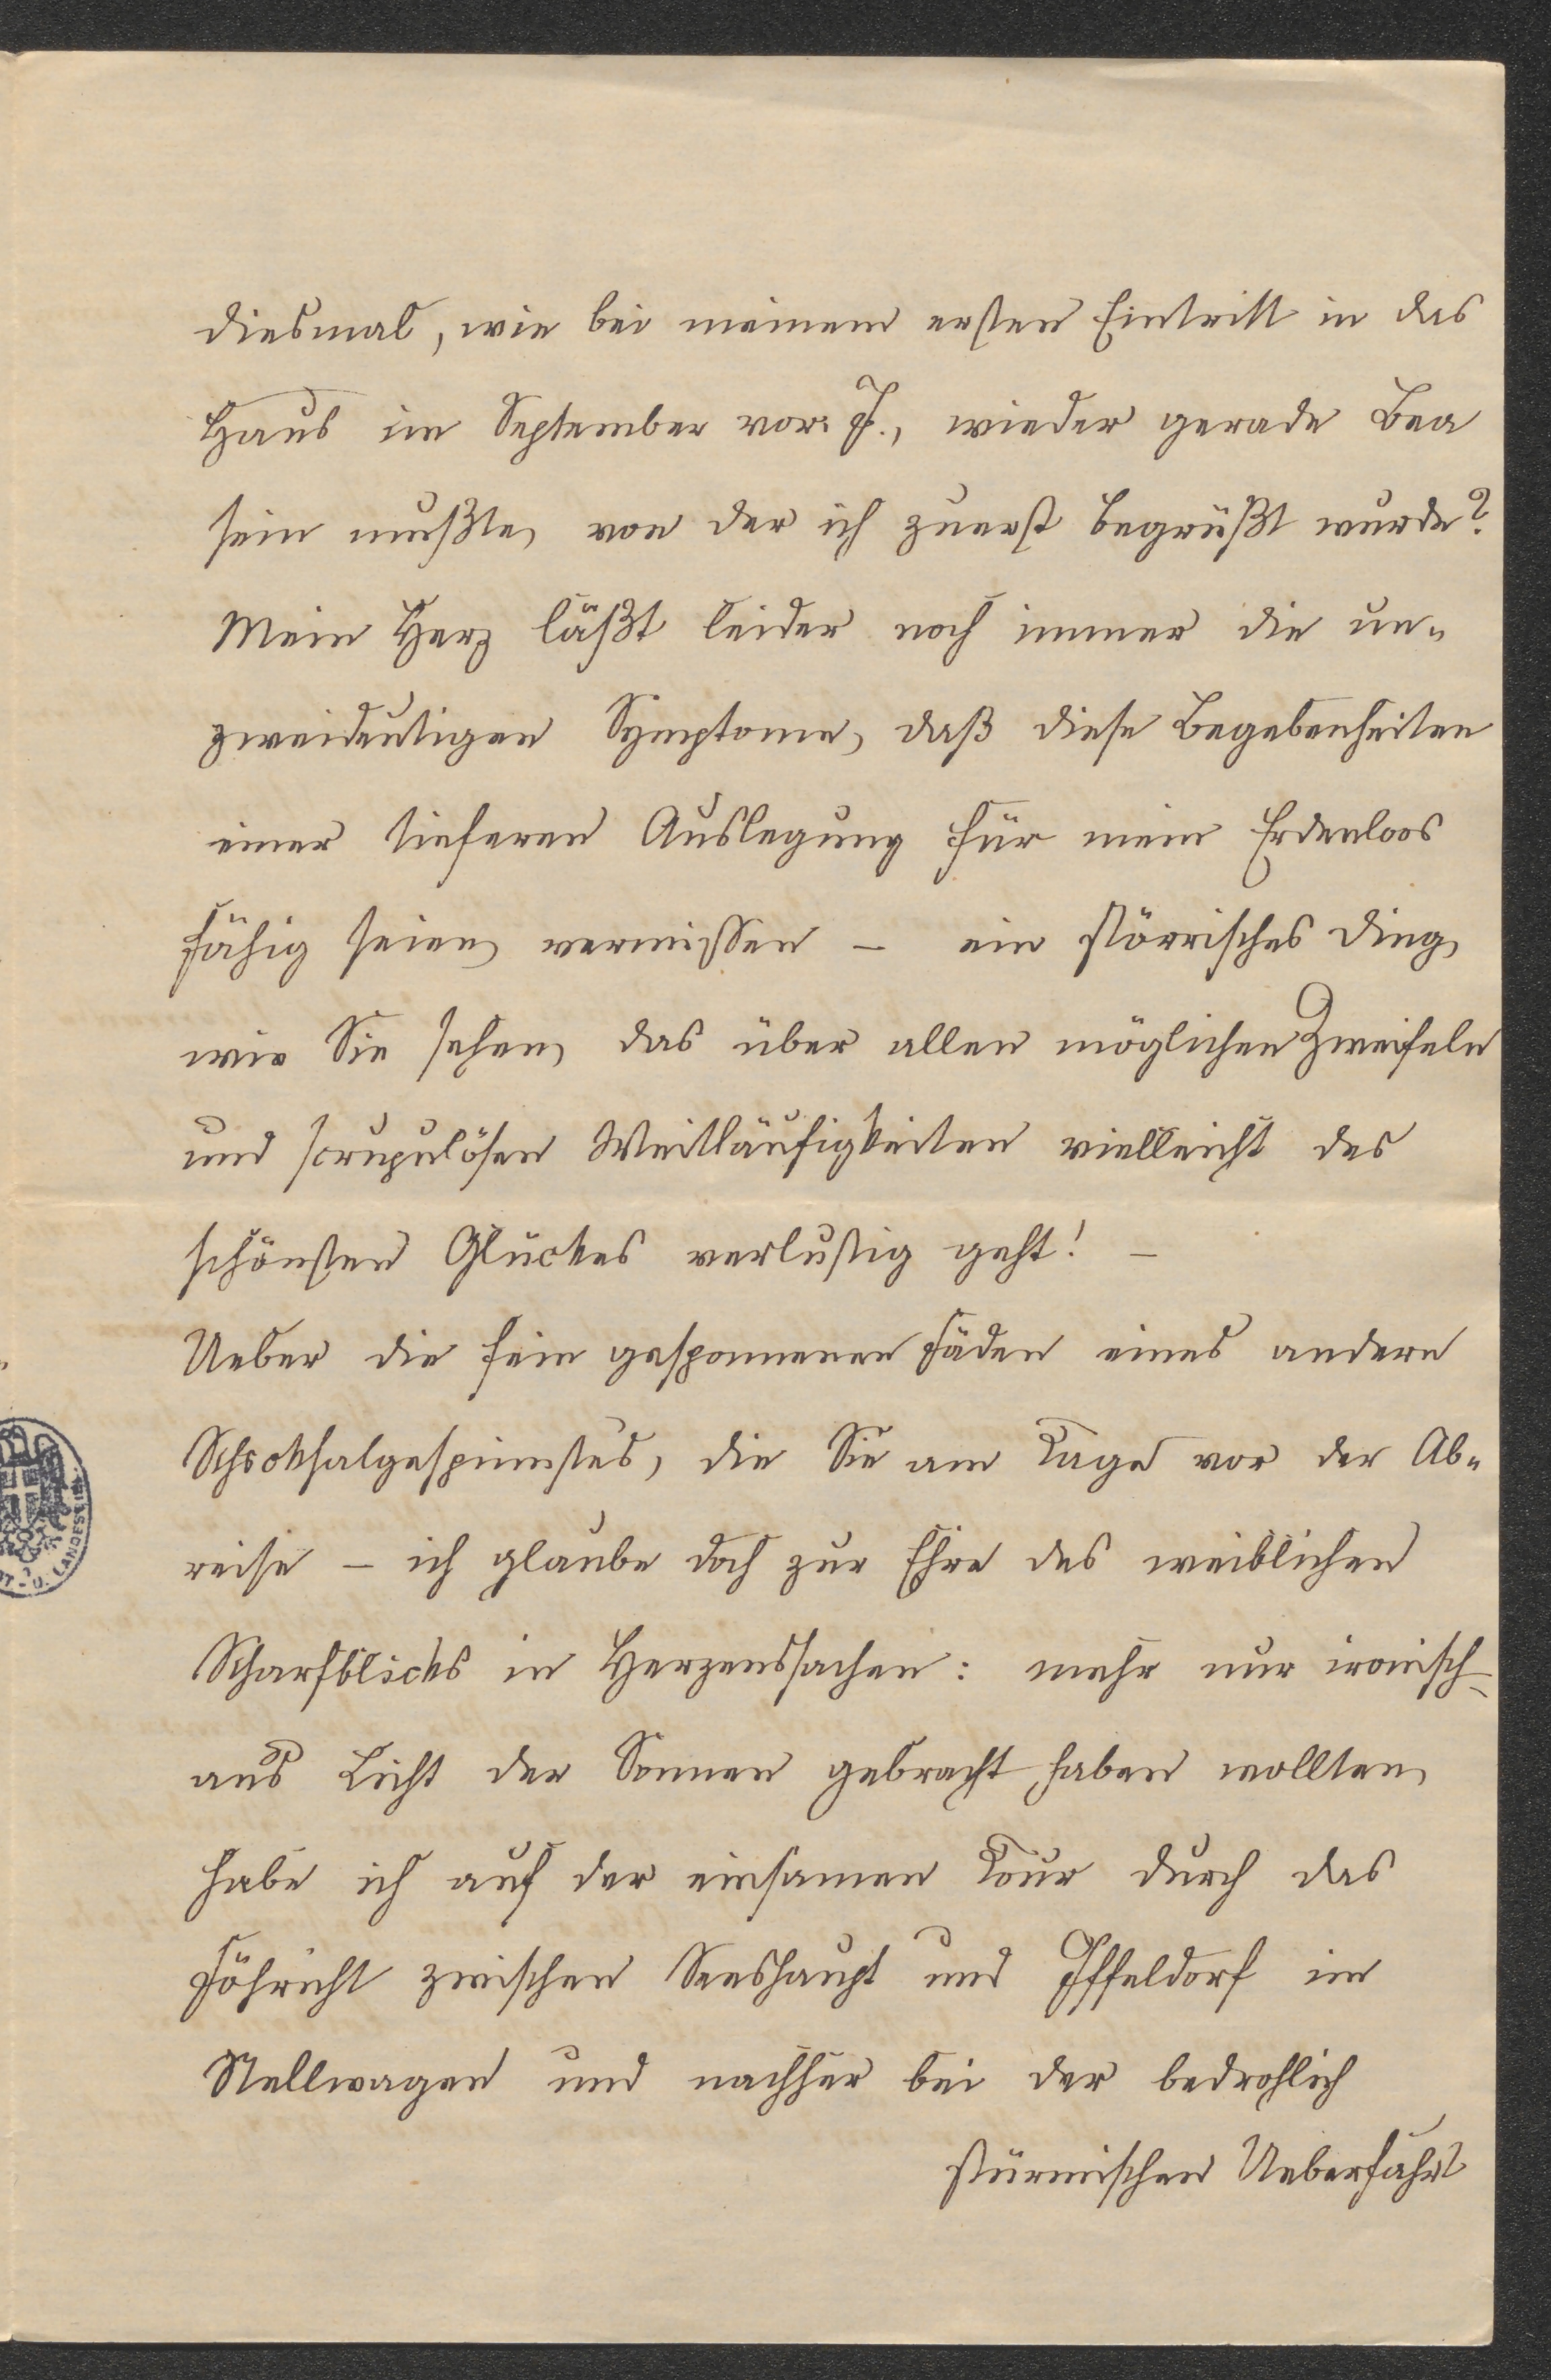 diesmal, wie bei meinem ersten Eintritt in das
Haus im September vor. J., wieder gerade Bea
sein mußte, von der ich zuerst begrüßt wurde?
Mein Herz läßt leider noch immer die un-
zweideutigen Symptome, daß diese Begebenheiten
einer tieferen Auslegung für mein Erdenloos
fähig seien, vermissen – ein störrisches Ding,
wie Sie sehen, das über allen möglichen Zweifeln
und scrupulösen Weitläufigkeiten vielleicht des
schönsten Glückes verlustig geht! –
Ueber die fein gesponnenen Fäden eines andern
Schicksalgespinnstes, die Sie am Tage vor der Ab-
reise – ich glaube doch zur Ehre des weiblichen
Scharfblicks in Herzenssachen: mehr nur ironisch –
ans Licht der Sonnen gebracht haben wollten,
habe ich auf der einsamen Tour durch das
Föhricht zwischen Seeshaupt und Iffeldorf im
Stellwagen und nachher bei der bedrohlich
stürmischen Ueberfahrt
U. LANDESBIBL.